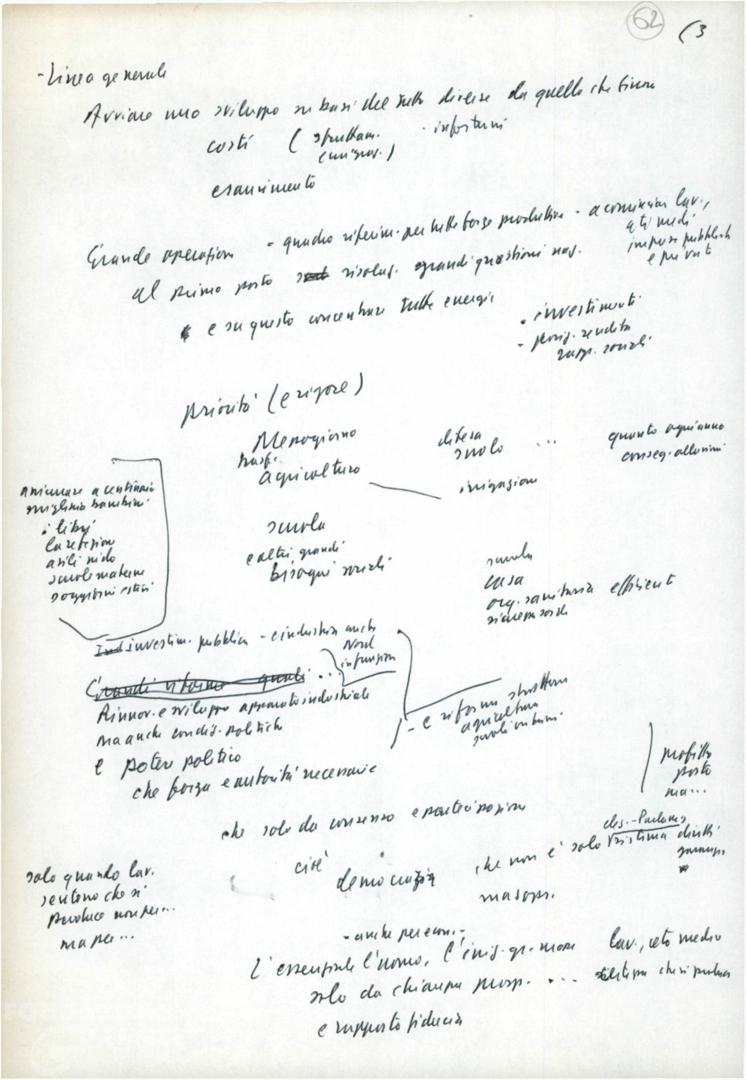 62 (3
- Linea generale
Avviare uno sviluppo su basi del tutto diverse da quelle che finora
costi ( sfruttam. - infortuni
emigraz. )
esaurimento
Grande operazione - quadro riferim. per tutte forze produttive - a cominciare lav.,
ceti medi
imprese pubbliche
e private
al primo posto risoluz. grandi questioni naz.
e su questo concentrare tutte energie
- investimenti
- posiz. rendita
rapp. sociali
priorità (e rigore)
Mezogiorno
trasf.
agricoltura
difesa
suolo ...
irrigazioni
quanto ogni anno
conseg. alluvioni
a centinaia
migliaia bambini
i libri
la refezione
asili nido
scuole materne
soggiorni estivi
scuola
e altri grandi
bisogni sociali
scuola
casa
org. sanitaria efficiente
investim. pubblica - e industria anche
Nord
in funzione
Grandi riforme quali ...
Rinnov. e sviluppo apparato industriale
ma anche condiz. politiche
e potere politico
che forza e autorità necessarie
- e riforme struttura
agricoltura
suoli urbani
profitto
posto
ma...
che solo da consenso e partecipazione
cioè democrazia che non è solo sistema diritti
ma sopr.
solo quando lav.
sentono che si
produce non per...
ma per...
- anche per econ. -
L'essenziale l'uomo, lav., ceto medio
solo da chiarezza prosp. ...
e rapporto fiducia